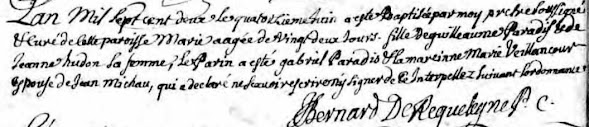 Lan Mil Sept Cent Deux le quatorzieme Juin a este Baptisée par moy p̅r̅e̅ Soussigné
& Curé de Cette paroisse Marie aagée de Vingt deux Jours fille De guillaume Paradis & de
Jeanne hudon Sa femme, le Parin a esté gabriel Paradis & la mareinne Marie Veillancour
Espouse de Jean Michau, qui a declaré ne Scavoir escrire ny Signer de Ce Interpellez Suivant lordonnance
Bernard De Requeleyne P. C.